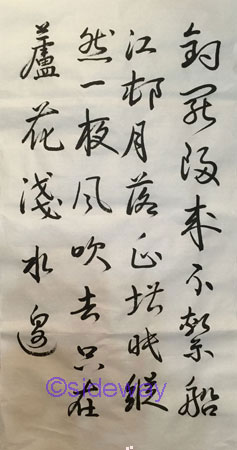 釣罷歸來不繫船
江邨月落正堪眠縱
然一夜風吹去只在
蘆花淺水邊
©sideway